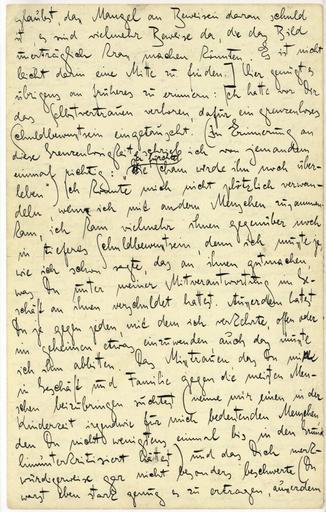 glaubst, das Mangel an Beweisen daran schuld
ist es sind vielmehr Beweise da, die das Bild
unerträglich krass machen könnten. Es ist nicht
leicht darin eine Mitte zu finden.] Hier genügt es
übrigens an früheres zu erinnern: Ich hatte vor Dir
das Selbstvertrauen verloren, dafür ein grenzenloses
Schuldbewusstsein eingetauscht. (In Erinnerung an
diese Grenzenlosigkeit schrieb ich von jemandem
einmal richtig: "Er fürchtet die Scham werde ihn noch über-
leben") Ich konnte mich nicht plötzlich verwan-
deln, wenn ich mit andern Menschen zusammen-
kam, ich kam vielmehr ihnen gegenüber noch
in tieferes Schuldbewusstsein denn ich musste ja
wie ich schon sagte, das an ihnen gutmachen
was Du unter meiner Mitverantwortung im Ge-
schäft an ihnen verschuldet hattest. Ausserdem hattest
Du ja gegen jeden, mit dem ich verkehrte, offen oder
im geheimen etwas einzuwenden auch das musste
ich ihm abbitten. Das Misstrauen das Du mir
in Geschäft und Familie gegen die meisten Men-
schen beizubringen suchtest (nenne mir einen in der
Kinderzeit irgendwie für mich bedeutenden Menschen
den Du nicht wenigstens einmal bis in den Grund
hinunterkritisiert hättest) und das Dich merk-
würdigerweise gar nicht besonders beschwerte (Du
warst eben stark genug es zu ertragen, ausserdem